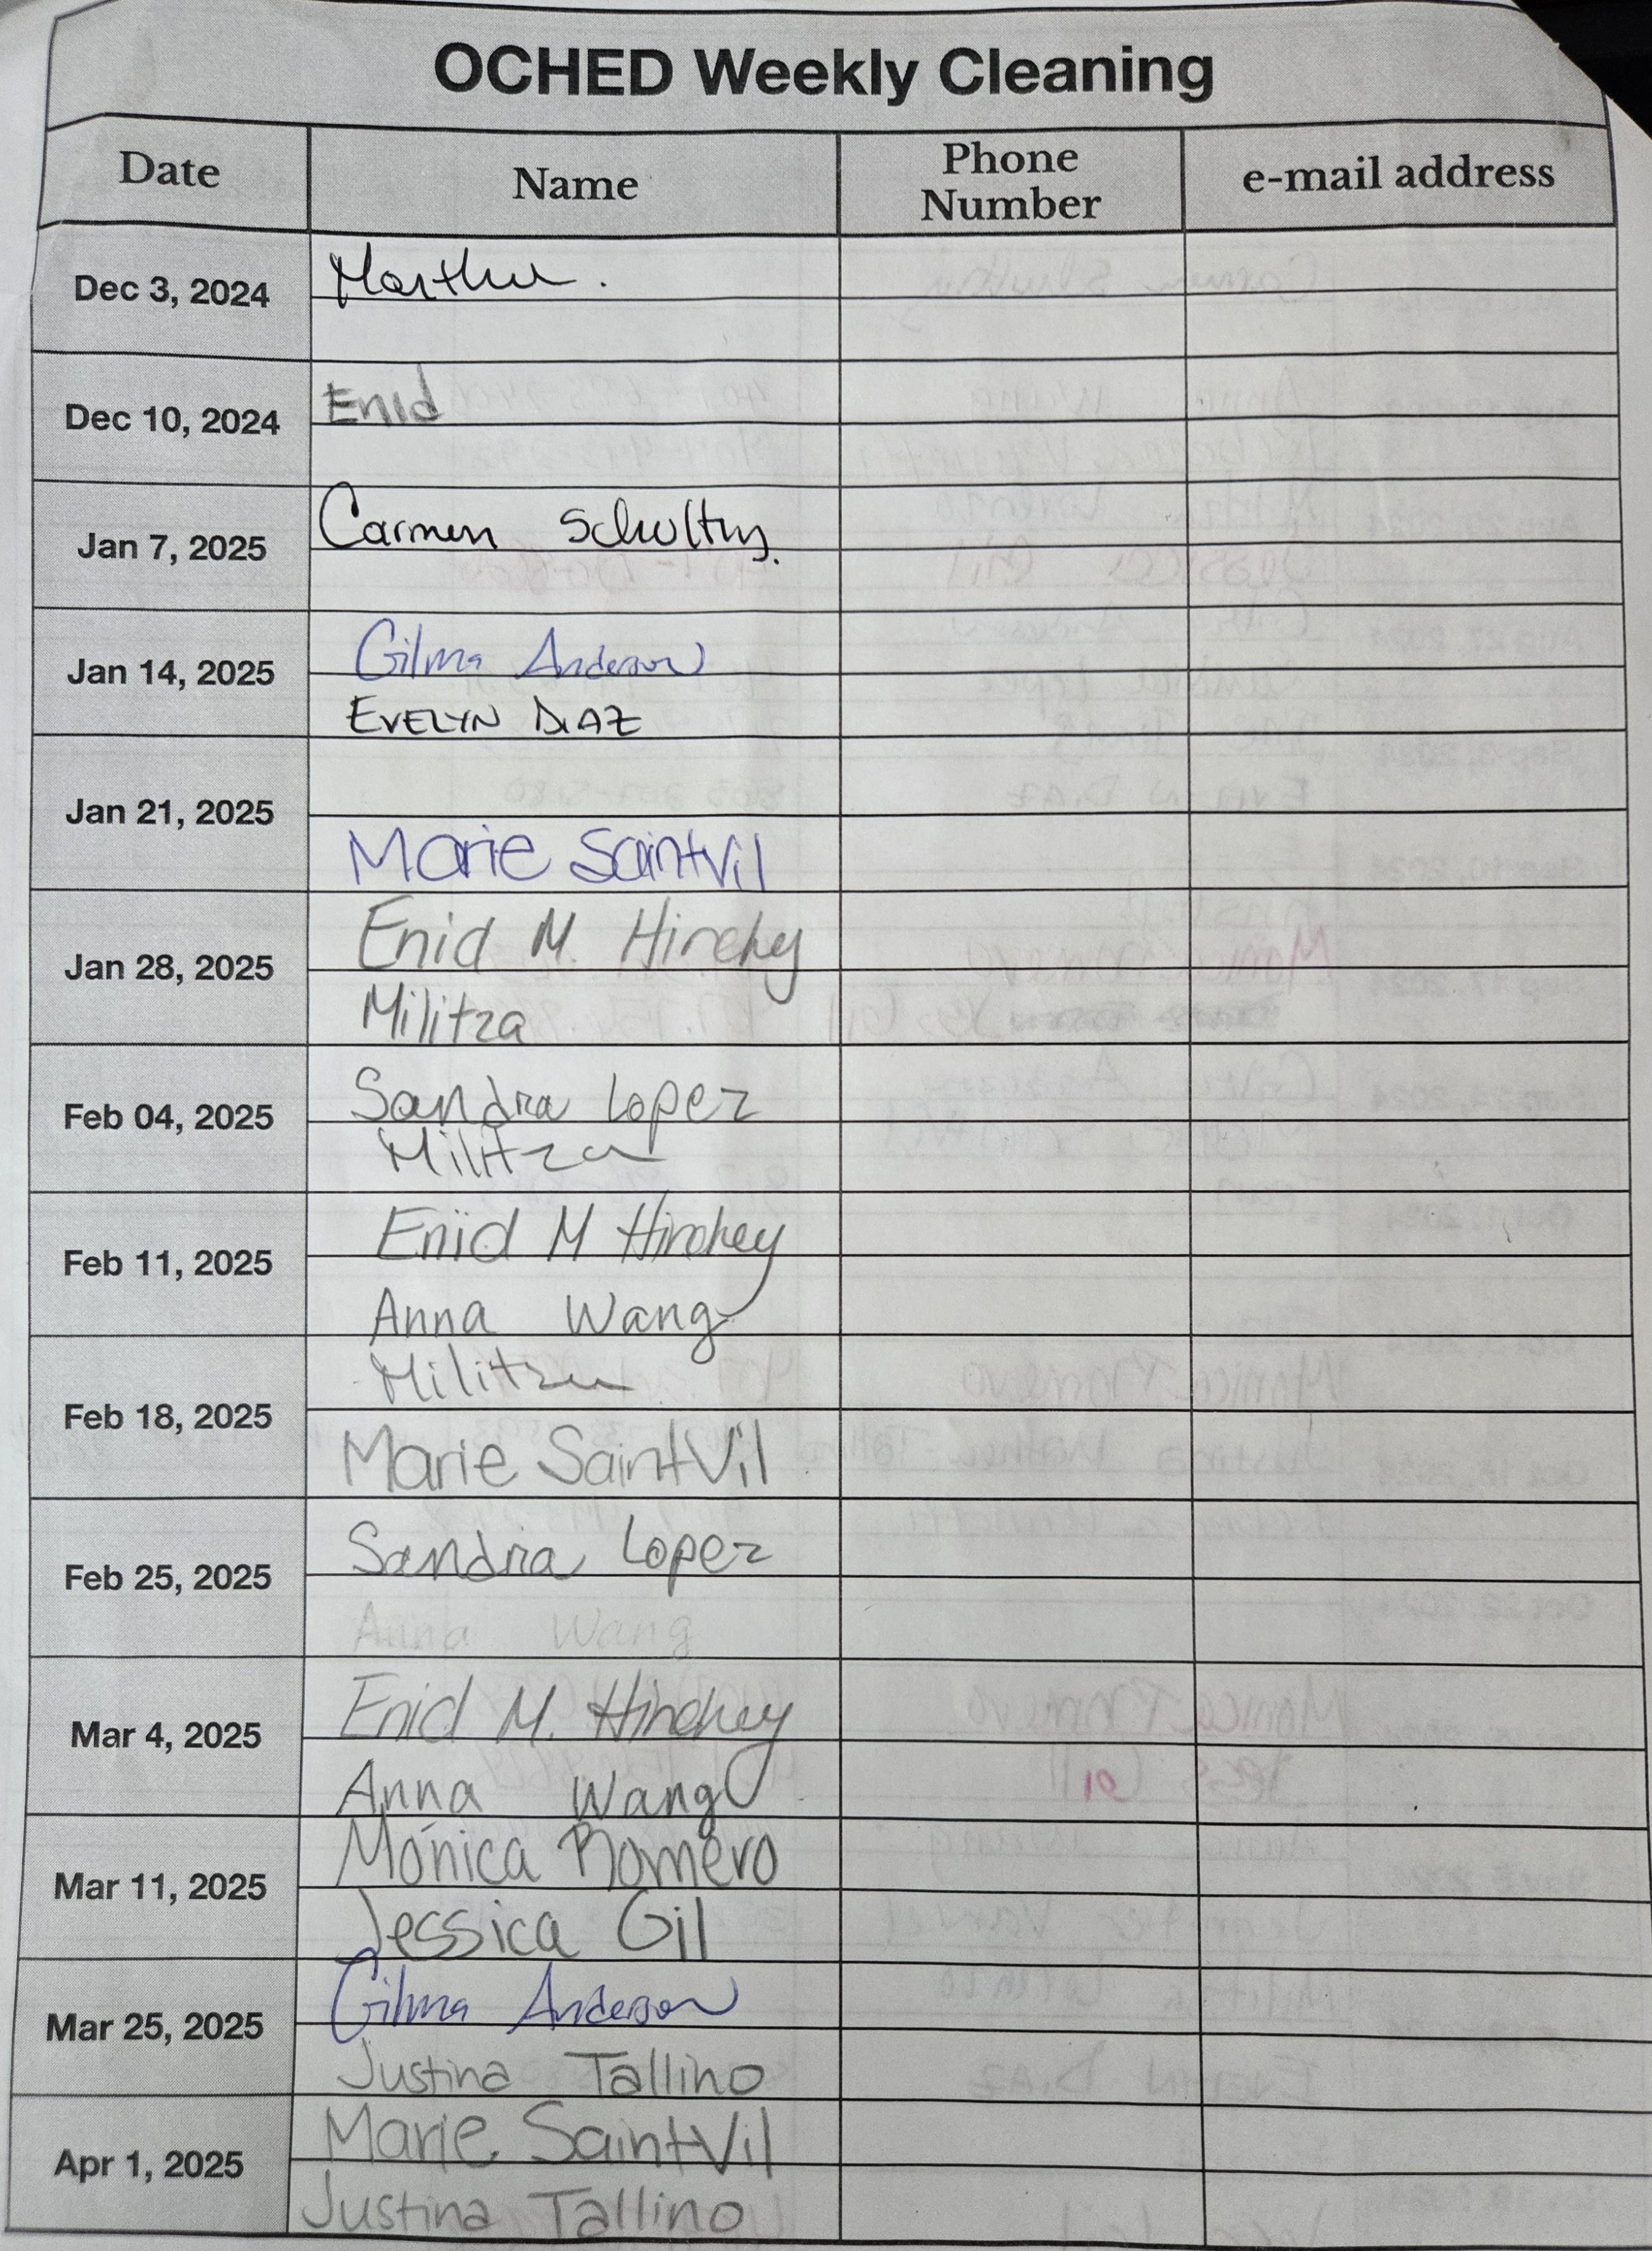 OCHED Weekly Cleaning
Date Name Phone Number e-mail address
Dec 3, 2024 Martha.
Dec 10, 2024 Enid
Jan 7, 2025 Carmen
Jan 14, 2025 Gilma Anderson
EVELYN DIAZ
Jan 21, 2025
Marie SaintVil
Jan 28, 2025 Enid M. Hinchey
Militza
Feb 04, 2025 Sandra Lopez
Militza
Feb 11, 2025 Enid M Hinchey
Anna Wang
Feb 18, 2025 Militza
Marie SaintVil
Feb 25, 2025 Sandra Lopez
Anna Wang
Mar 4, 2025 Enid M. Hinchey
Anna Wang
Mar 11, 2025 Mónica Romero
Jessica Gil
Mar 25, 2025 Gilma Anderson
Justina Tallino
Apr 1, 2025 Marie SaintVil
Justina Tallino